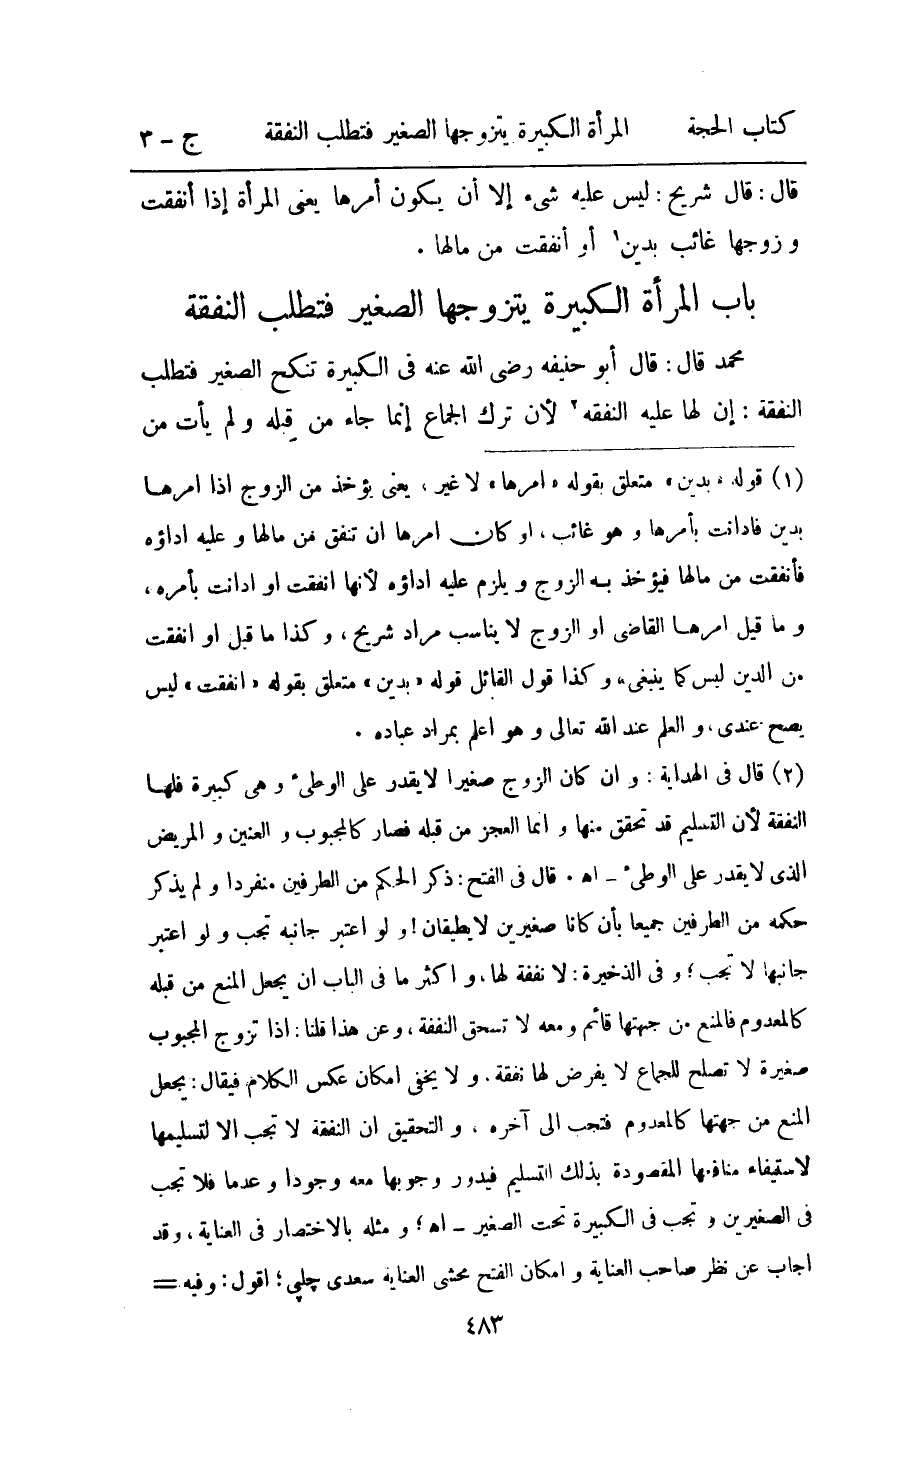 كتاب الحجة المرأة الكبيرة يتزوجها الصغير فتطلب النفقة ج - ٣
قال : قال شريح : ليس عليه شىء إلا أن يكون أمرها يعنى المرأة إذا أنفقت
و زوجها غائب بدين١ أو أنفقت من مالها .
باب المرأة الكبيرة يتزوجها الصغير فتطلب النفقة
محمد قال : قال أبو حنيفه رضى الله عنه فى الكبيرة تنكح الصغير فتطلب
النفقة : إن لها عليه النفقه٢ لأن ترك الجماع إنما جاء من قِبله و لم يأت من
(١) قوله « بدين » متعلق بقوله « امرها » لا غير ، يعنى يؤخذ من الزوج اذا امرهـا
بدين فادانت بأمرها و هو غائب ، او كان امرها ان تنفق من مالها و عليه اداؤه
فأنفقت من مالها فيؤخذ به الزوج و يلزم عليه اداؤه لأنها انفقت او ادانت بأمره ،
و ما قيل امرهـا القاضى او الزوج لا يناسب مراد شريح ، و كذا ما قيل او انفقت
من الدين ليس كما ينبغى ، و كذا قول القائل قوله « بدين » متعلق بقوله « انفقت » ليس
يصح عندى ، و العلم عند الله تعالى و هو اعلم بمراد عباده .
(٢) قال فى الهداية : و ان كان الزوج صغيرا لا يقدر على الوطىء و هى كبيرة فلهـا
النفقة لأن التسليم قد تحقق منها و انما العجز من قبله فصار كالمجبوب و العنين و المريض
الذى لا يقدر على الوطىء ـ اه . قال فى الفتح : ذكر الحكم من الطرفين منفردا و لم يذكر
حكمه من الطرفين جميعا بأن كانا صغيرين لا يطيقان ! و لو اعتبر جانبه تجب و لو اعتبر
جانبها لا تجب ؛ و فى الذخيرة : لا نفقة لها ، و اكثر ما فى الباب ان يجعل المنع من قبله
كالمعدوم فالمنع من جهتها قائم و معه لا تسحق النفقة ، و عن هذا قلنا : اذا تزوج المجبوب
صغيرة لا تصلح للجماع لا يفرض لها نفقة . و لا يخفى امكان عكس الكلام فيقال : يجعل
المنع من جهتها كالمعدوم فتجب الى آخره ، و التحقيق ان النفقة لا تجب الا لتسليمها
لاستيفاء منافعها المقصودة بذلك التسليم فيدور وجوبها معه وجودا و عدما فلا تجب
فى الصغيرين و تجب فى الكبيرة تحت الصغير ـ اه ؛ و مثله بالاختصار فى العناية ، و قد
اجاب عن نظر صاحب العناية و امكان الفتح محشى العناية سعدى چلپي ؛ اقول : و فيه =
٤٨٣